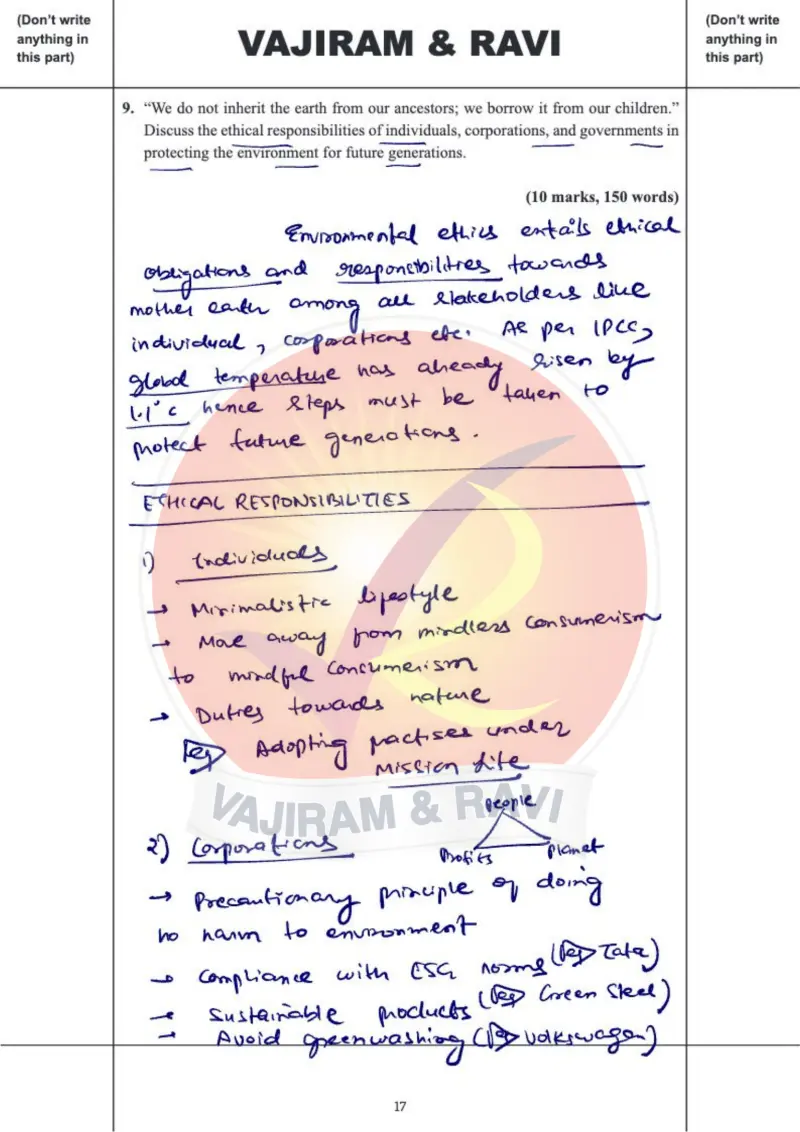 (Don't write
anything in
this part)
VAJIRAM & RAVI
(Don't write
anything in
this part)
9. “We do not inherit the earth from our ancestors; we borrow it from our children.”
Discuss the ethical responsibilities of individuals, corporations, and governments in
protecting the environment for future generations.
(10 marks, 150 words)
Environmental ethics entails ethical
obligations and responsibilities towards
mother earth among all stakeholders like
individual, corporations etc. As per IPCC,
global temperature has already risen by
1.1°C hence steps must be taken to
protect future generations.
ETHICAL RESPONSIBILITIES
1) Individuals
→ Minimalistic lifestyle
→ Move away from mindless consumerism
to mindful consumerism
→ Duties towards nature
eg Adopting practises under
Mission Life
VAJIRAM & RAVI
People
2) Corporations
Profits Planet
→ Precautionary principle of doing
no harm to environment
→ Compliance with ESG norms (eg Tata)
→ Sustainable products (eg Green Steel)
→ Avoid greenwashing (eg Volkswagen)
17